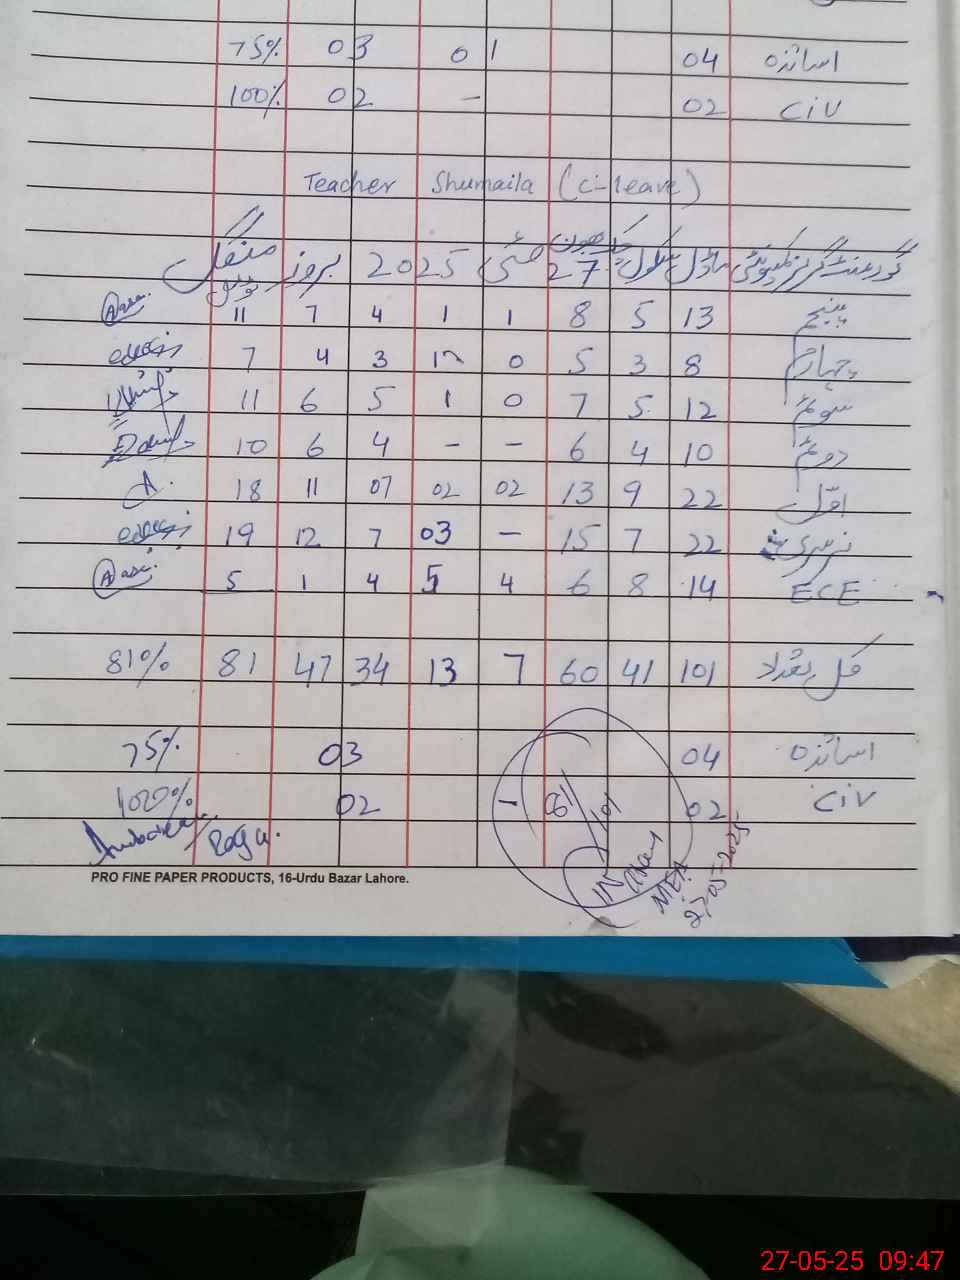 75% 03 01 04 اساتذہ
100% 02 – 02 CIV
Teacher Shumaila (C-leave)
گورنمنٹ گرلز کمیونٹی ماڈل سکول 27 مئی 2025 بروز منگل
پنجم 13 5 8 1 1 4 7 11
چہارم 8 3 5 0 3 4 7
سوئم 12 5 7 0 1 5 6 11
دوئم 10 4 6 – – 4 6 10
اوّل 22 9 13 02 02 07 11 18 A.
نرسری 22 7 15 – 03 7 12 19
ECE 14 8 6 4 5 4 1 5
کل تعداد 101 41 60 7 13 34 47 81 81%
اساتذہ 04 03 75%
CIV 02 02 100%
81/101
IN
MEA
27-05-2025
PRO FINE PAPER PRODUCTS, 16-Urdu Bazar Lahore.
27-05-25 09:47